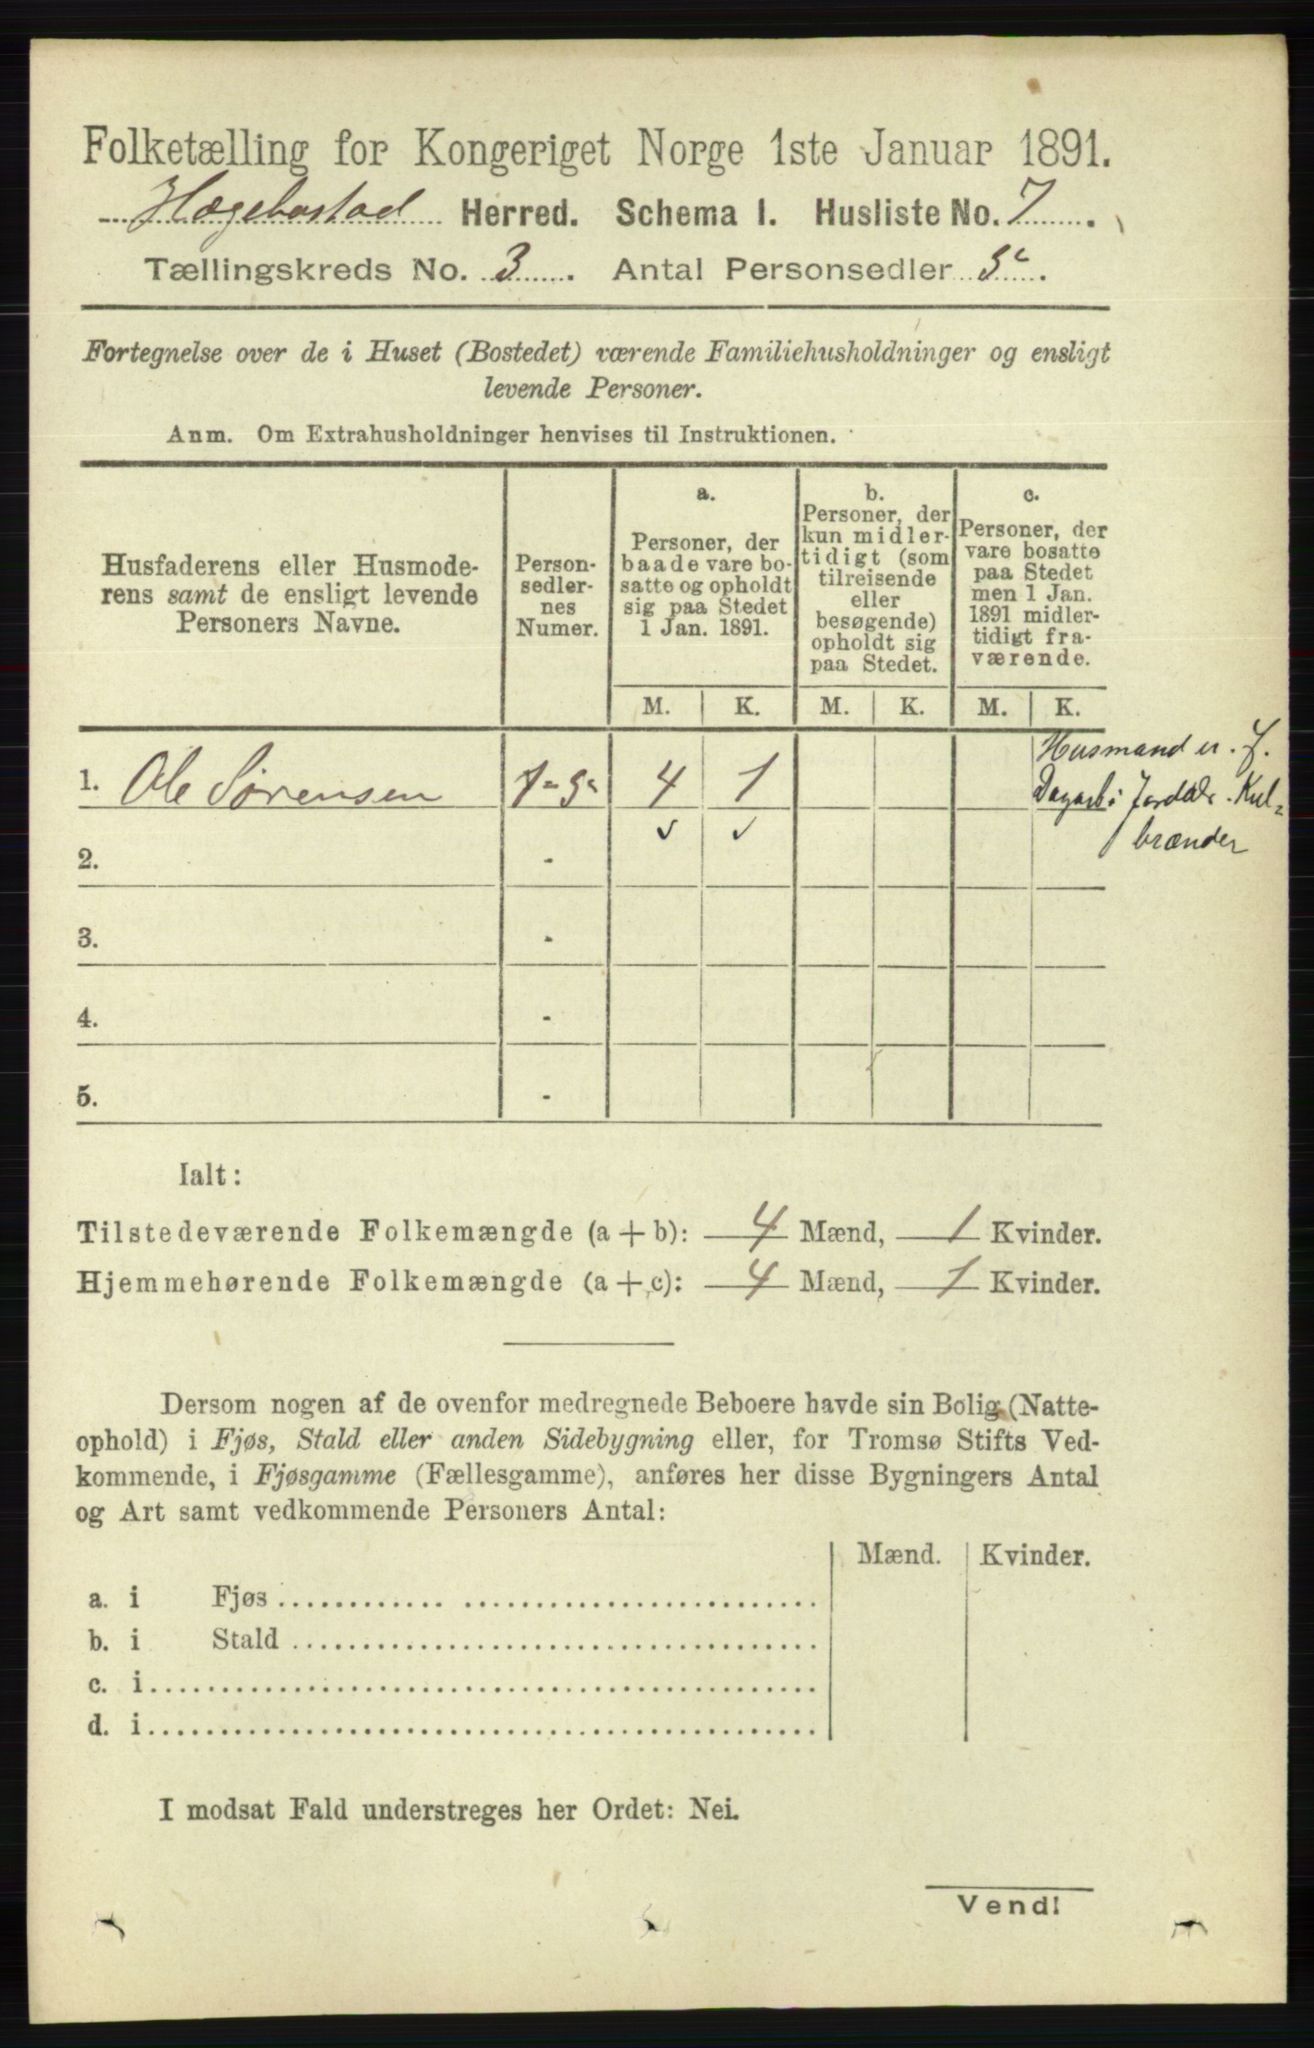 Folketælling for Kongeriget Norge 1ste Januar 1891.
Hægebostad Herred. Schema I. Husliste No. 7.
Tællingskreds No. 3. Antal Personsedler 5.
Fortegnelse over de i Huset (Bostedet) værende Familiehusholdninger og ensligt
levende Personer.
Anm. Om Extrahusholdninger henvises til Instruktionen.
Husfaderens eller Husmode-
rens samt de ensligt levende
Personers Navne.
Person-
sedler-
nes
Numer.
a.
Personer, der
baade vare bo-
satte og opholdt
sig paa Stedet
1 Jan. 1891.
b.
Personer, der
kun midler-
tidigt (som
tilreisende
eller
besøgende)
opholdt sig
paa Stedet.
c.
Personer, der
vare bosatte
paa Stedet
men 1 Jan.
1891 midler-
tidigt fra-
værende.
M. K. M. K. M. K.
1. Ole Sørensen 1-5 4 1
Husmand u. J.
Dagarb. i Jordbr. Kul=
brænder
2. -
3. -
4. -
5. -
Ialt:
Tilstedeværende Folkemængde (a + b): 4 Mænd, 1 Kvinder.
Hjemmehørende Folkemængde (a + c): 4 Mænd, 1 Kvinder.
Dersom nogen af de ovenfor medregnede Beboere havde sin Bolig (Natte-
ophold) i Fjøs, Stald eller anden Sidebygning eller, for Tromsø Stifts Ved-
kommende, i Fjøsgamme (Fællesgamme), anføres her disse Bygningers Antal
og Art samt vedkommende Personers Antal:
Mænd. Kvinder.
a. i Fjøs
b. i Stald
c. i
d. i
I modsat Fald understreges her Ordet: Nei.
Vend!